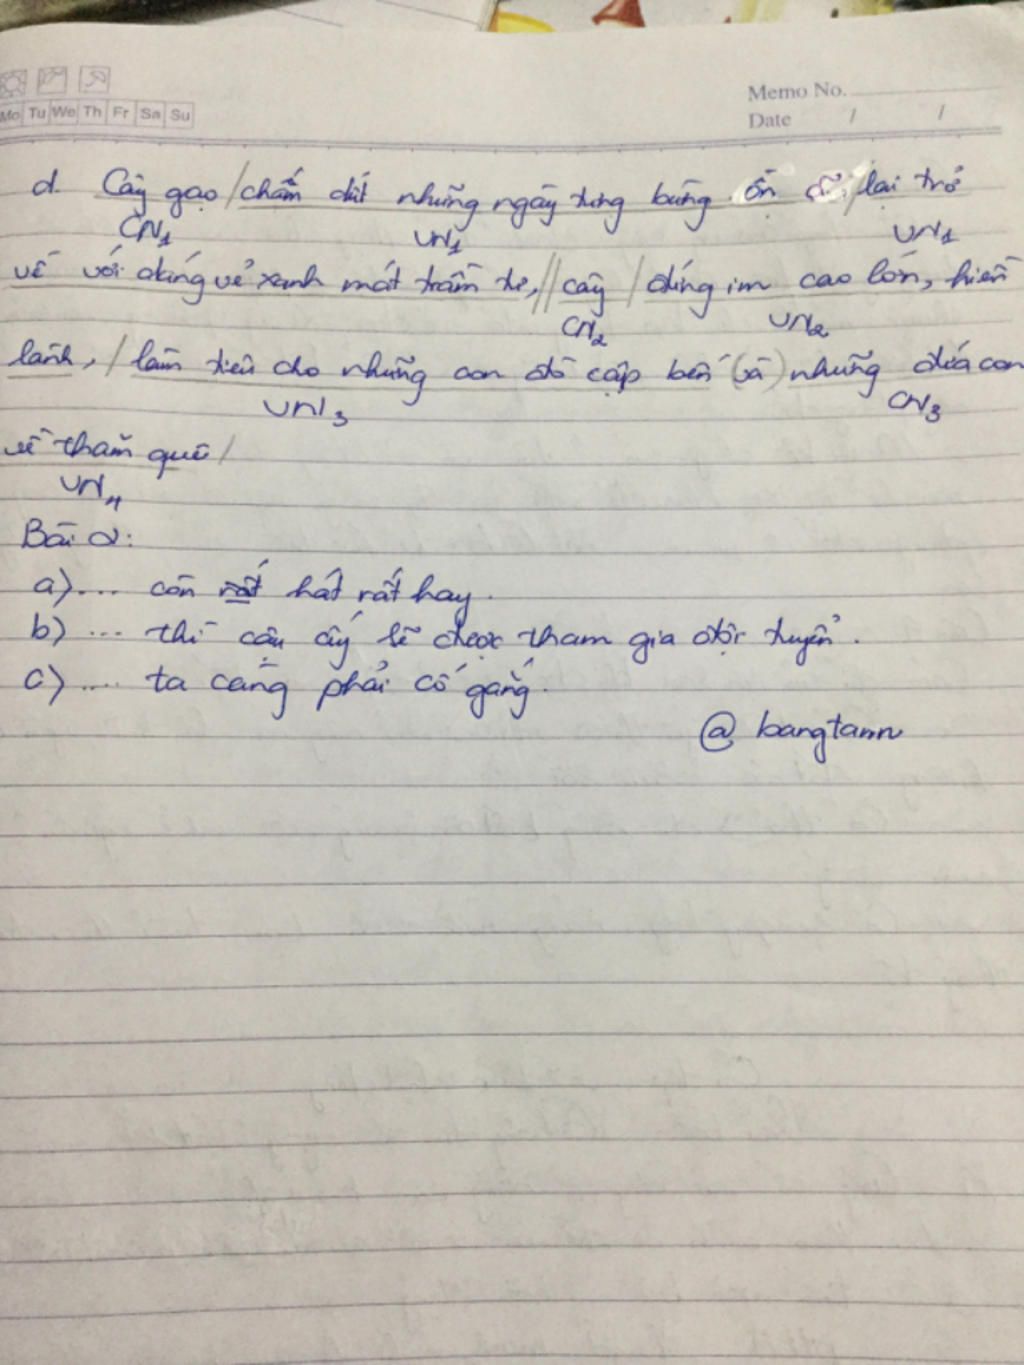 Mo Tu We Th Fr Sa Su
Memo No.
Date / /
d. Cây gạo / chấm dứt những ngày tưng bừng ồn / lại trở
CN1 VN1 VN1
về với dáng vẻ xanh mát trầm tư, // cây / đứng im cao lớn, hiền
CN2 VN2
lành, / làm tiêu cho những con đò cập bến (và) những đứa con
VN3 CN3
về thăm quê /
VN4
Bài 2:
a) ... còn hát rất hay.
b) ... thì cậu ấy sẽ được tham gia đội tuyển.
c) .... ta càng phải cố gắng.
@ bangtann